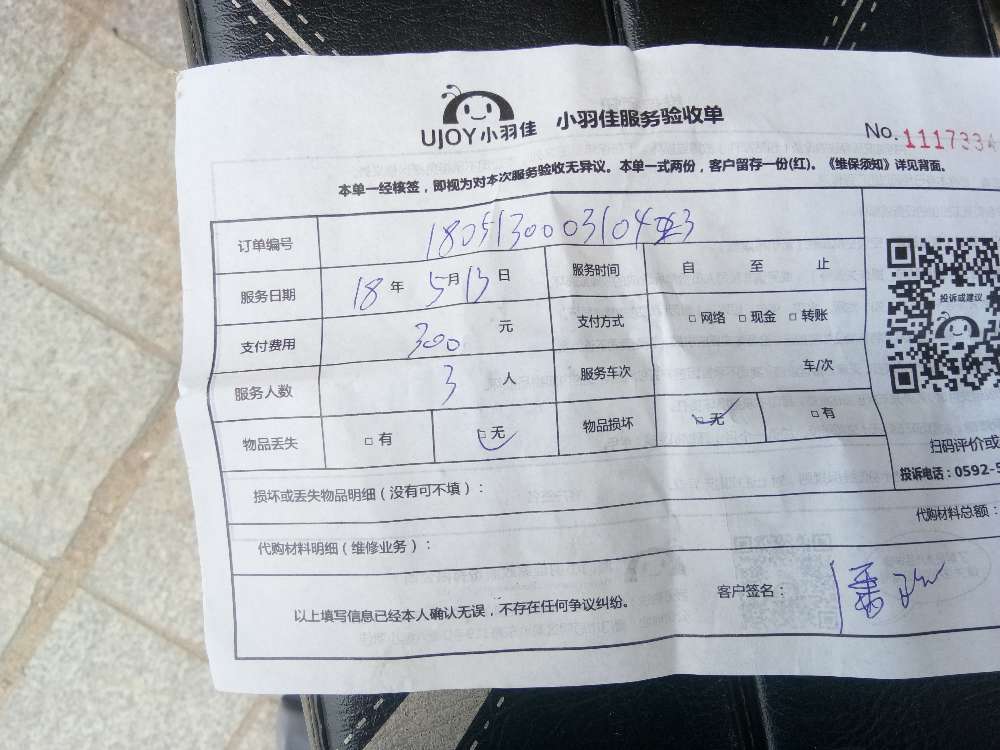 UJOY小羽佳 小羽佳服务验收单 No.1117334
本单一经核签，即视为对本次服务验收无异议。本单一式两份，客户留存一份(红)。《维保须知》详见背面。
订单编号
服务日期 18年5月13日 服务时间 自 至 止
支付费用 300 元 支付方式 □网络 □现金 □转账
服务人数 3 人 服务车次 车/次
物品丢失 □有 □无 物品损坏 □无 □有
投诉或建议
扫码评价或
投诉电话：0592-5
损坏或丢失物品明细（没有可不填）：
代购材料明细（维修业务）： 代购材料总额：
以上填写信息已经本人确认无误，不存在任何争议纠纷。 客户签名：